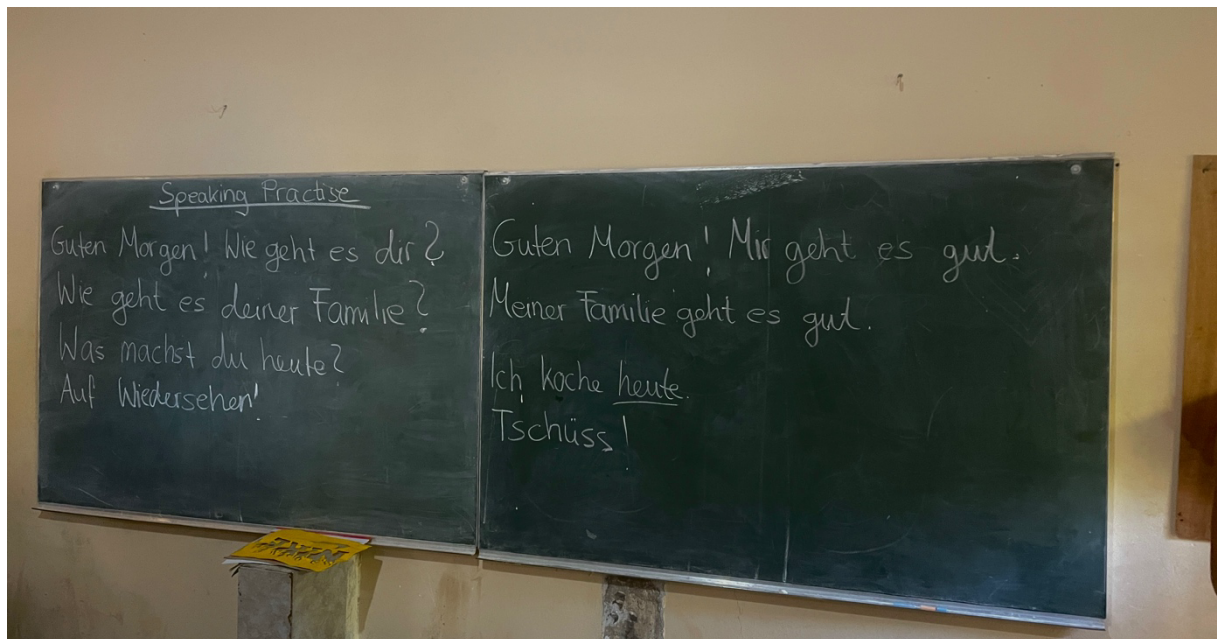 Speaking Practise
Guten Morgen! Wie geht es dir?
Wie geht es deiner Familie?
Was machst du heute?
Auf Wiedersehen!
Guten Morgen! Mir geht es gut.
Meiner Familie geht es gut.
Ich koche heute.
Tschüss!